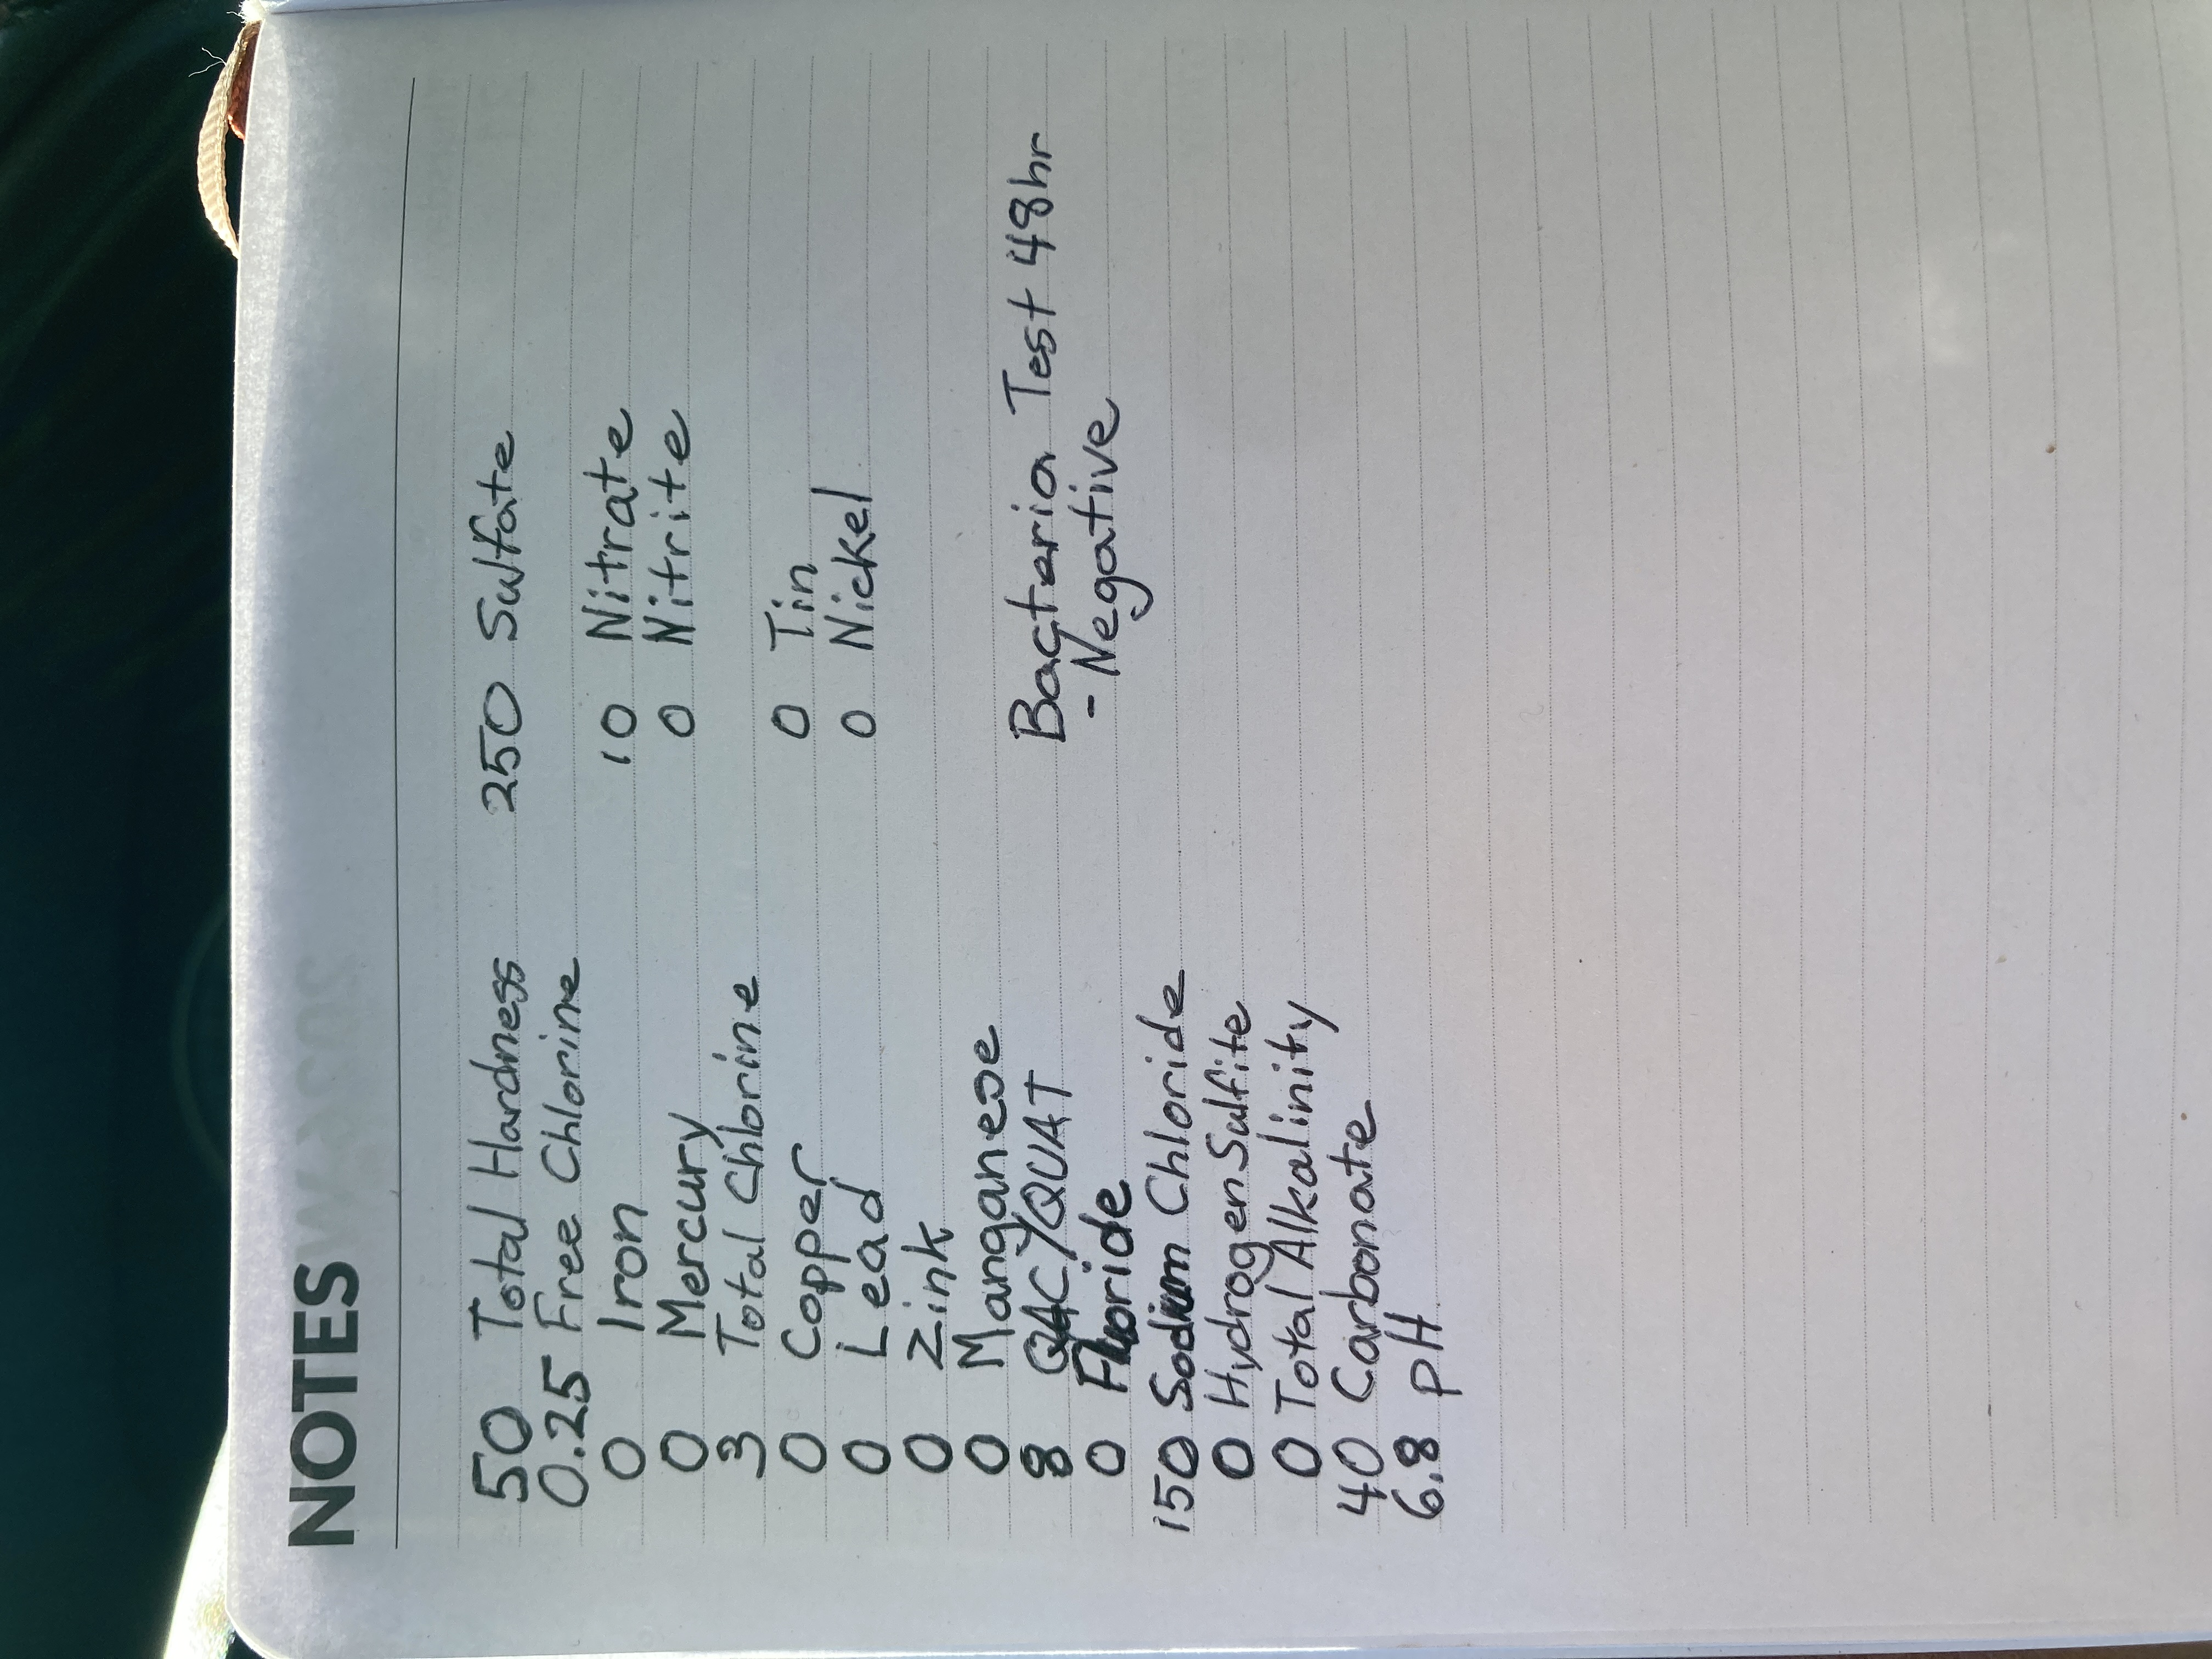 NOTES
50 Total Hardness
0.25 Free Chlorine
0 Iron
0 Mercury
3 Total Chlorine
0 Copper
0 Lead
0 Zink
0 Manganese
8 QAC/QUAT
0 Fluoride
150 Sodium Chloride
0 Hydrogen Sulfite
0 Total Alkalinity
40 Carbonate
6.8 pH
250 Sulfate
10 Nitrate
0 Nitrite
0 Tin
0 Nickel
Bacteria Test 48hr
- Negative